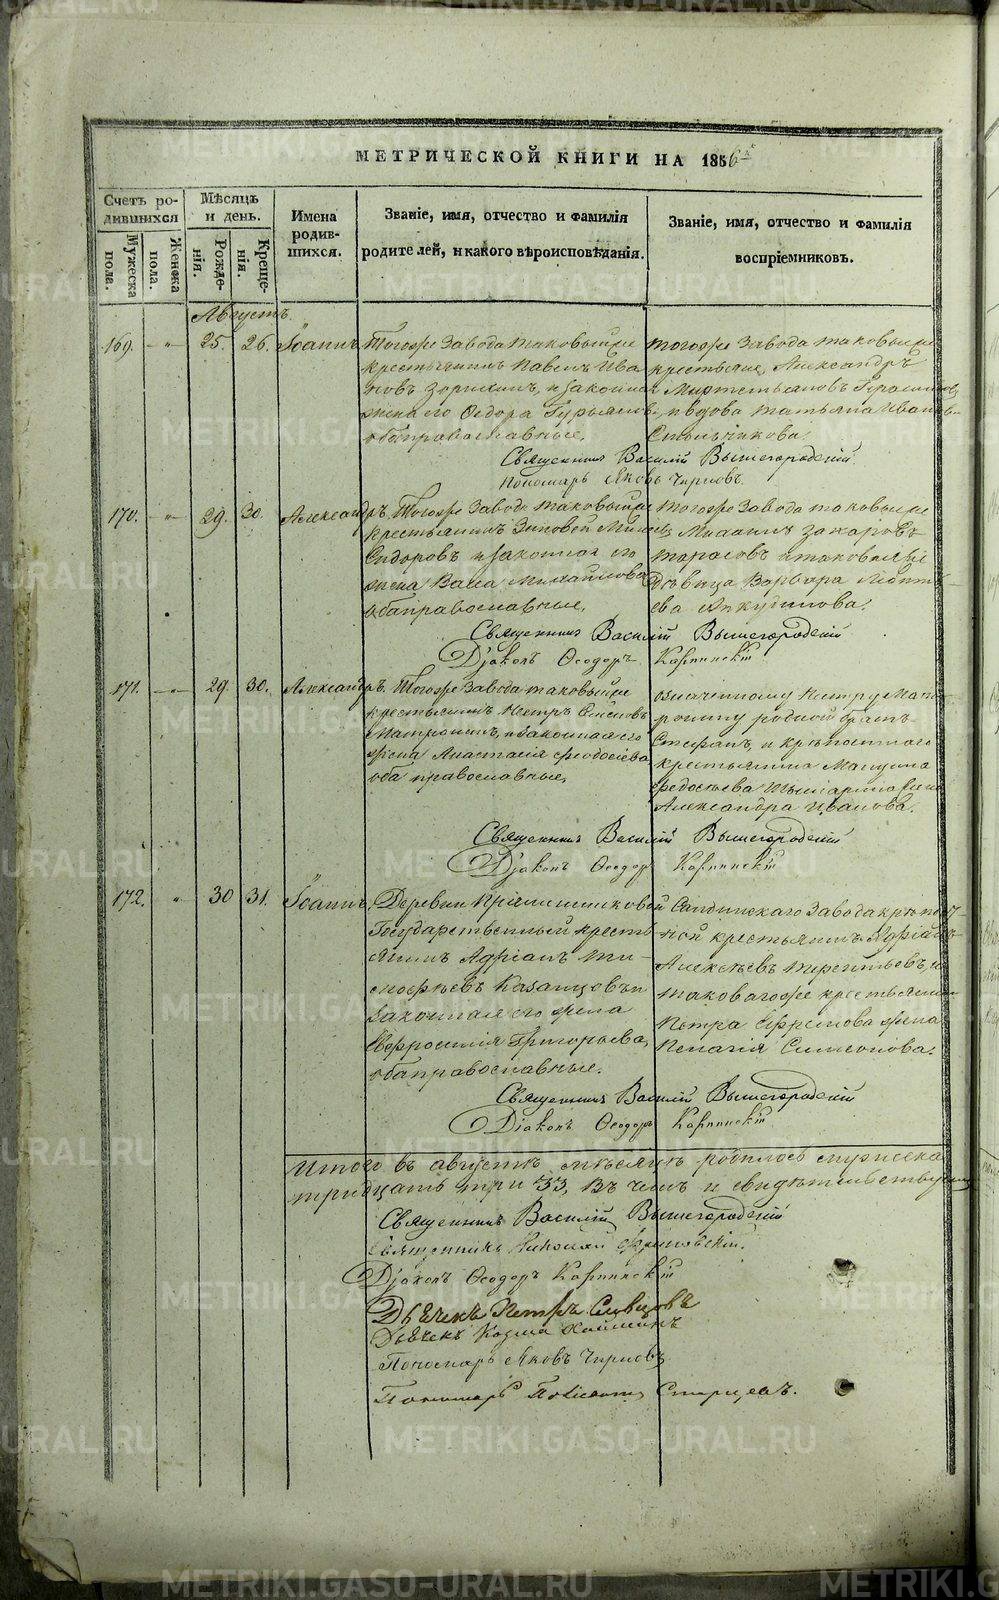 МЕТРИЧЕСКОЙ КНИГИ НА 1856
Счетъ родившихся
Мѣсяцъ и день.
Имена родившихся.
Званіе, имя, отчество и фамилія родителей, и какого вѣроисповѣданія.
Званіе, имя, отчество и фамилія воспріемниковъ.
Мужеска пола.
Женска пола.
Рожденія.
Крещенія.
Августъ.
169. 25. 26. Іоаннъ
Тогоже завода таковыйже
крестьянинъ Павелъ Ива
новъ и законная
жена его Ѳедора Гурьянова
оба православные.
Тогоже завода таковыйже
крестьянинъ Александръ
и вдова Татьяна Иванова
Священникъ Василій Вышегородскій
Пономарь Яковъ Чирковъ.
170. 29. 30. Александръ.
Тогоже завода таковыйже
крестьянинъ Зиновей
Сидоровъ и законная его
жена Васса Михайлова
оба православные.
Тогоже завода таковыйже
Захаровъ
Тарасовъ и таковая же
дѣвица Варвара
Священникъ Василій Вышегородскій
Діаконъ Ѳеодоръ Карпинскій
171. 29. 30. Александръ.
Тогоже завода таковыйже
крестьянинъ Петръ
и законная его
жена Анастасія Феодосіева
оба православные.
означенному Петру
родной братъ
Стефанъ, и крѣпостнаго
крестьянина
Александра Иванова.
Священникъ Василій Вышегородскій
Діаконъ Ѳеодоръ Карпинскій
172. 30 31. Іоаннъ.
Деревни
Государственный кресть
янинъ Адріанъ Ти
моѳѣевъ Казанцовъ и
законная его жена
Евфросинія Григорьева,
оба православные.
Салдинскаго завода крѣпост
ной крестьянинъ Адріанъ
Алексѣевъ Терентьевъ, и
таковагоже крестьянина
Петра Ефремова жена
Пелагія Симеонова.
Священникъ Василій Вышегородскій
Діаконъ Ѳеодоръ Карпинскій
Итого въ августѣ мѣсяцѣ родилось мужеска
тридцать три 33, въ чемъ и свидѣтельствуемъ
Священникъ Василій Вышегородскій
Священникъ Николай
Діаконъ Ѳеодоръ Карпинскій
Дьячекъ Петръ Словцовъ
Дьячекъ Козма
Пономарь Яковъ Чирковъ
Пономарь
METRIKI.GASO-URAL.RU